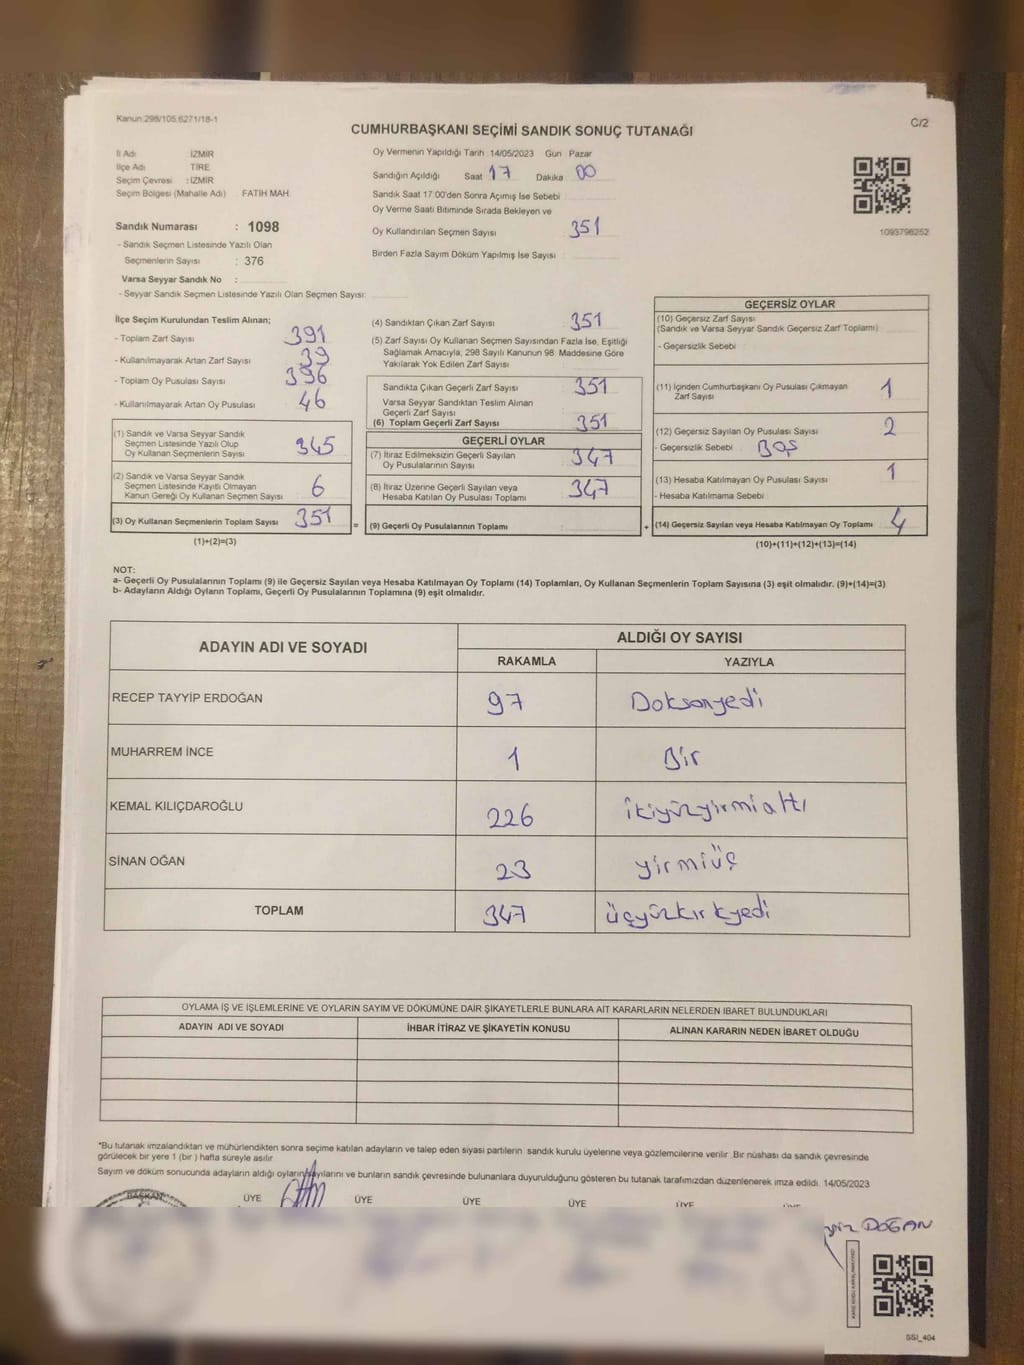 Kanun:298/105,6271/18-1
C/2
CUMHURBAŞKANI SEÇİMİ SANDIK SONUÇ TUTANAĞI
İl Adı : İZMİR
İlçe Adı : TİRE
Seçim Çevresi : İZMİR
Seçim Bölgesi (Mahalle Adı) FATİH MAH.
Sandık Numarası : 1098
- Sandık Seçmen Listesinde Yazılı Olan
Seçmenlerin Sayısı : 376
Varsa Seyyar Sandık No :
- Seyyar Sandık Seçmen Listesinde Yazılı Olan Seçmen Sayısı:
Oy Vermenin Yapıldığı Tarih :14/05/2023 Gün Pazar
Sandığın Açıldığı Saat 17 Dakika 00
Sandık Saat 17:00'den Sonra Açılmış İse Sebebi
Oy Verme Saati Bitiminde Sırada Bekleyen ve
Oy Kullandırılan Seçmen Sayısı 351
Birden Fazla Sayım Döküm Yapılmış İse Sayısı :
1093796252
İlçe Seçim Kurulundan Teslim Alınan;
- Toplam Zarf Sayısı : 391
- Kullanılmayarak Artan Zarf Sayısı : 39
- Toplam Oy Pusulası Sayısı : 396
- Kullanılmayarak Artan Oy Pusulası : 46
(1) Sandık ve Varsa Seyyar Sandık
Seçmen Listesinde Yazılı Olup
Oy Kullanan Seçmenlerin Sayısı 345
(2) Sandık ve Varsa Seyyar Sandık
Seçmen Listesinde Kayıtlı Olmayan
Kanun Gereği Oy Kullanan Seçmen Sayısı 6
(3) Oy Kullanan Seçmenlerin Toplam Sayısı 351
(1)+(2)=(3)
(4) Sandıktan Çıkan Zarf Sayısı : 351
(5) Zarf Sayısı Oy Kullanan Seçmen Sayısından Fazla İse, Eşitliği
Sağlamak Amacıyla, 298 Sayılı Kanunun 98. Maddesine Göre
Yakılarak Yok Edilen Zarf Sayısı :
Sandıkta Çıkan Geçerli Zarf Sayısı : 351
Varsa Seyyar Sandıktan Teslim Alınan
Geçerli Zarf Sayısı :
(6) Toplam Geçerli Zarf Sayısı : 351
GEÇERLİ OYLAR
(7) İtiraz Edilmeksizin Geçerli Sayılan
Oy Pusulasının Sayısı : 347
(8) İtiraz Üzerine Geçerli Sayılan veya
Hesaba Katılan Oy Pusulası Toplamı : 347
= (9) Geçerli Oy Pusulalarının Toplamı :
GEÇERSİZ OYLAR
(10) Geçersiz Zarf Sayısı
(Sandık ve Varsa Seyyar Sandık Geçersiz Zarf Toplamı)
- Geçersizlik Sebebi :
(11) İçinden Cumhurbaşkanı Oy Pusulası Çıkmayan
Zarf Sayısı : 1
(12) Geçersiz Sayılan Oy Pusulası Sayısı : 2
- Geçersizlik Sebebi : BOŞ
(13) Hesaba Katılmayan Oy Pusulası Sayısı : 1
- Hesaba Katılmama Sebebi :
+ (14) Geçersiz Sayılan veya Hesaba Katılmayan Oy Toplamı : 4
(10)+(11)+(12)+(13)=(14)
NOT:
a- Geçerli Oy Pusulalarının Toplamı (9) ile Geçersiz Sayılan veya Hesaba Katılmayan Oy Toplamı (14) Toplamları, Oy Kullanan Seçmenlerin Toplam Sayısına (3) eşit olmalıdır. (9)+(14)=(3)
b- Adayların Aldığı Oyların Toplamı, Geçerli Oy Pusulalarının Toplamına (9) eşit olmalıdır.
ADAYIN ADI VE SOYADI
ALDIĞI OY SAYISI
RAKAMLA YAZIYLA
RECEP TAYYİP ERDOĞAN 97 Doksanyedi
MUHARREM İNCE 1 Bir
KEMAL KILIÇDAROĞLU 226 ikiyüzyirmialtı
SİNAN OĞAN 23 yirmiüç
TOPLAM 347 üçyüzkırkyedi
OYLAMA İŞ VE İŞLEMLERİNE VE OYLARIN SAYIM VE DÖKÜMÜNE DAİR ŞİKAYETLERLE BUNLARA AİT KARARLARIN NELERDEN İBARET BULUNDUKLARI
ADAYIN ADI VE SOYADI İHBAR İTİRAZ VE ŞİKAYETİN KONUSU ALINAN KARARIN NEDEN İBARET OLDUĞU
*Bu tutanak imzalandıktan ve mühürlendikten sonra seçime katılan adayların ve talep eden siyasi partilerin sandık kurulu üyelerine veya gözlemcilerine verilir. Bir nüshası da sandık çevresinde
görülecek bir yere 1 (bir ) hafta süreyle asılır.
Sayım ve döküm sonucunda adayların aldığı oyların sayılarını ve bunların sandık çevresinde bulunanlara duyurulduğunu gösteren bu tutanak tarafımızdan düzenlenerek imza edildi. 14/05/2023
BAŞKAN ÜYE ÜYE ÜYE ÜYE ÜYE ÜYE
DOĞAN
SSI_404